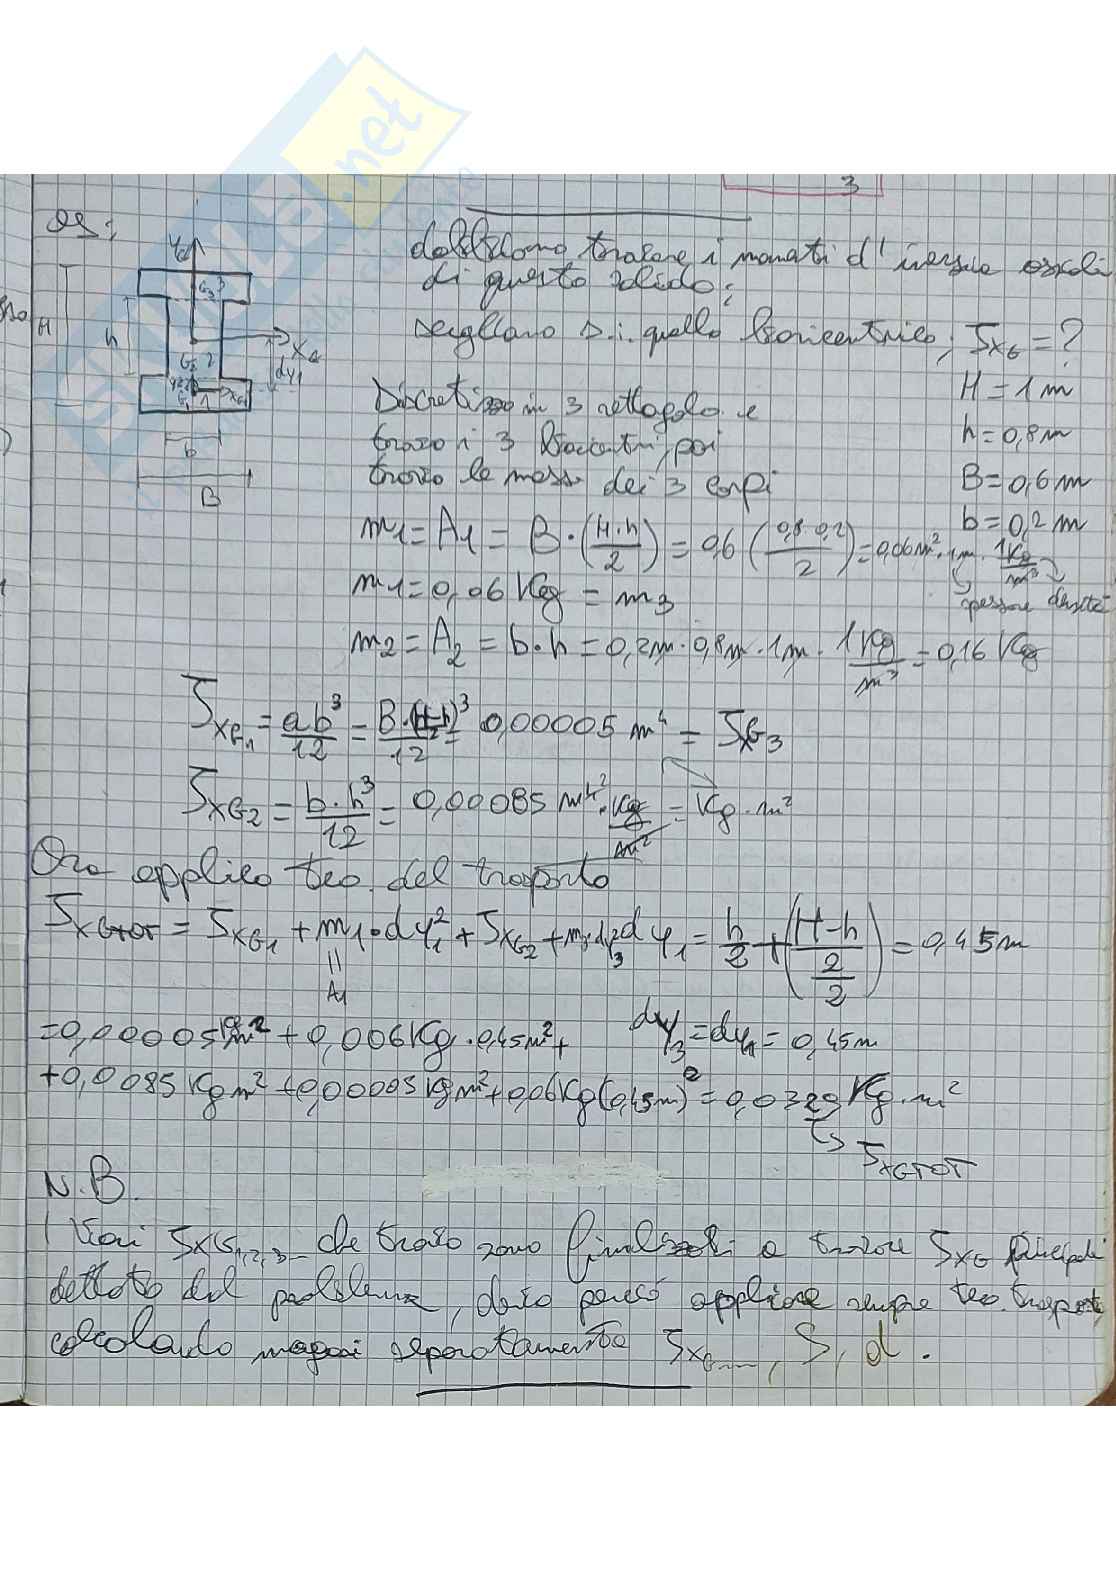 3
es:
dobbiamo trovare i momenti d'inerzia assiali
di questo solido:
scegliamo s.i. quello baricentrico, JxG = ?
H = 1 m
h = 0,8 m
B = 0,6 m
b = 0,2 m
YG
XG
H
h
dy1
G3 3
G2 2
G1 1
b
B
Discretizzo in 3 rettagolo e
trovo i 3 baricentri, poi
trovo le masse dei 3 corpi
m1 = A1 = B · (H-h / 2) = 0,6 (0,8·0,2 / 2) = 0,06 m² · 1m · 1 Kg/m³
spessore densità
m1 = 0,06 Kg = m3
m2 = A2 = b·h = 0,2m · 0,8m · 1m · 1 Kg/m³ = 0,16 Kg
JxG1 = ab³/12 = B·(H-h / 2)³/12 = 0,00005 m⁴ = JxG3
JxG2 = b·h³/12 = 0,00085 m⁴² · Kg/m² = Kg·m²
Ora applico teo. del trasporto
JxGTOT = JxG1 + m1·dy1² + JxG2 + m3 dy3² dy1 = h/2 + (H-h / 2 / 2) = 0,45 m
A1
= 0,00005 Kgm² + 0,006 Kg · 0,45m² + dy3 = dy1 = 0,45 m
+ 0,0085 Kgm² + 0,00005 Kgm² + 0,06 Kg (0,45m)² = 0,0329 Kg·m²
JxGTOT
N.B.
I vari JxG1,2,3 che trovo sono finalizzati a trovare JxG principale
dettato dal problema, devo perciò applicare sempre teo. trasporto,
calcolando magari separatamente JxG..., S, d.